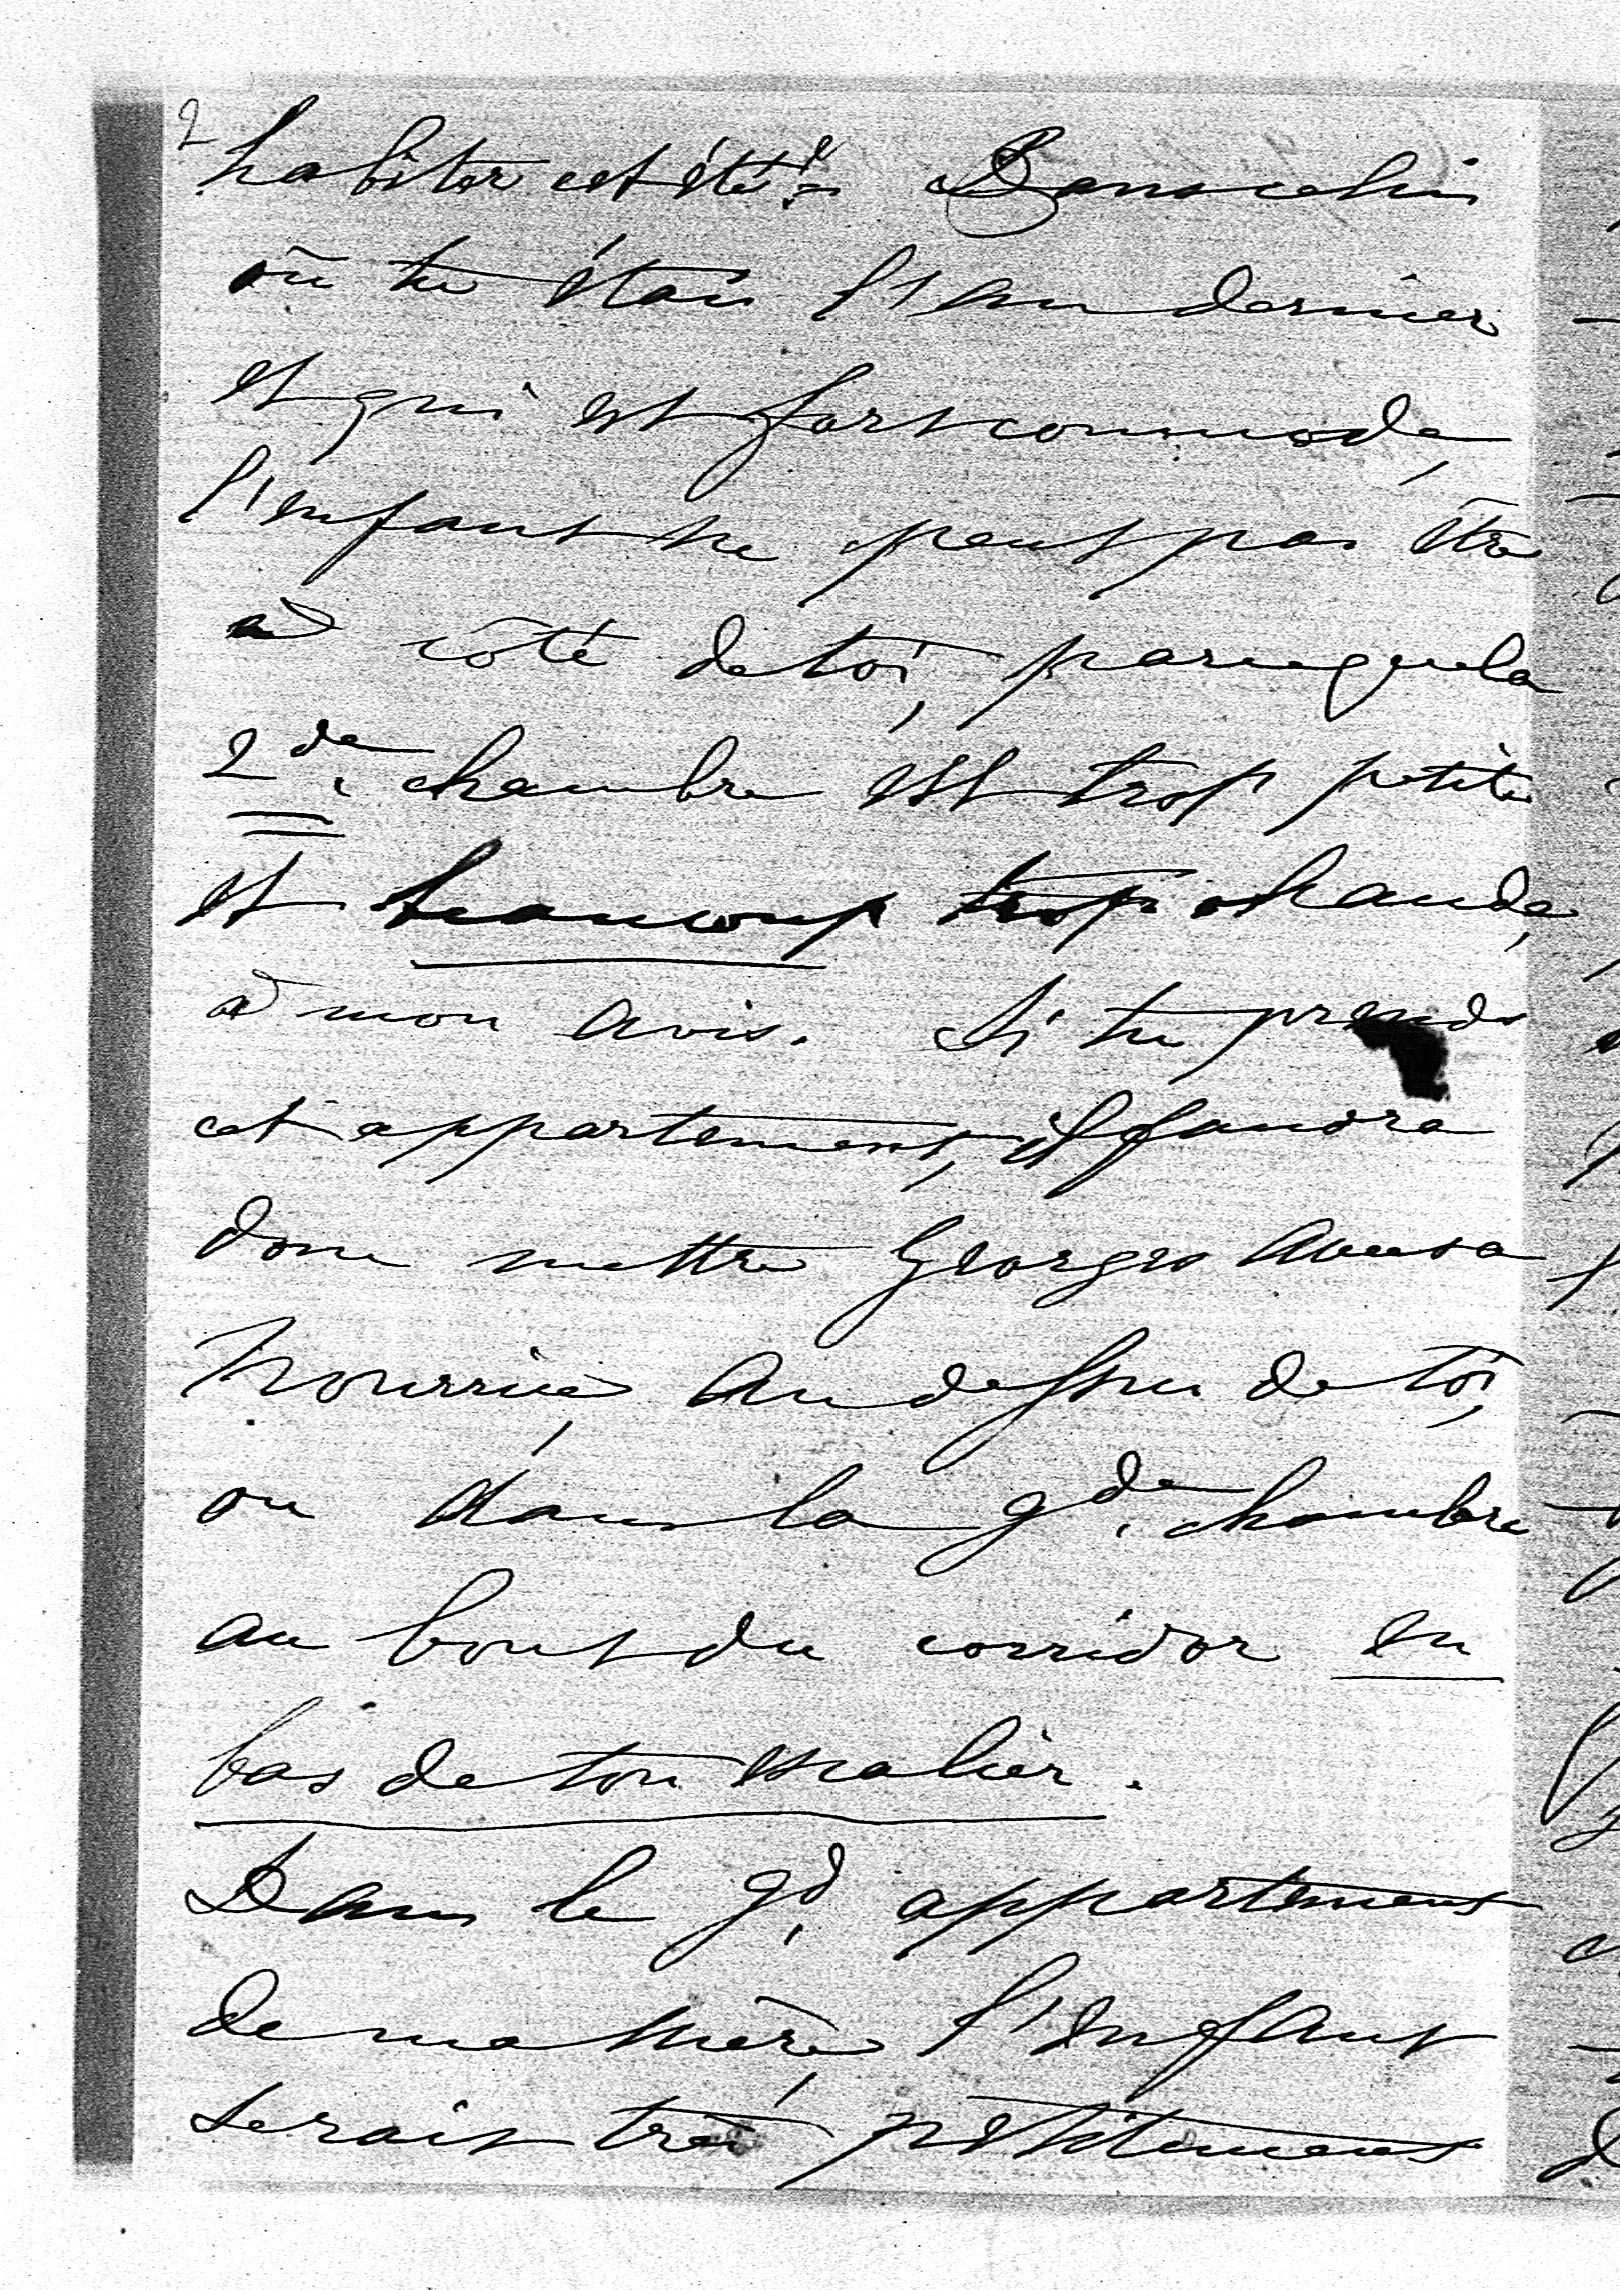 2
habiter cet été? Dans celui
où tu étais l'an dernier
et qui est fort commode,
l'enfant ne peut pas être
à côté de toi, parceque la
2de chambre est trop petite
et beaucoup trop chaude,
à mon avis. Si tu prends
cet appartement, il faudra
donc mettre Georges avec sa
Nourrice, au dessus de toi,
ou dans la gde chambre
au bout du corridor en
bas de ton escalier.
Dans le gd appartement
de ma mère, l'enfant
serait très petitement